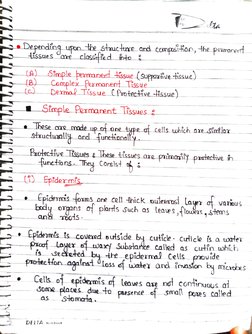 • Depending upon the structure and composition, the permanent
tissues are classified into :
(A) Simple permanent tissue (supportive tissue)
(B) Complex Permanent Tissue
(C) Dermal Tissue (Protective tissue)
■ Simple Permanent Tissues :
• These are made up of one type of cells which are similar
structurally and functionally.
Protective Tissues : These tissues are primarily protective in
functions. They consist of :
(1) Epidermis
• Epidermis forms one cell thick outermost layer of various
body organs of plants such as leaves, flowers, stems
and roots.
• Epidermis is covered outside by cuticle. Cuticle is a water
proof layer of waxy substance called as cutin which
is secreted by the epidermal cells provide
protection against loss of water and invasion by microbes
• Cells of epidermis of leaves are not continuous at
some places due to presence of small pores called
as stomata.
DELTA